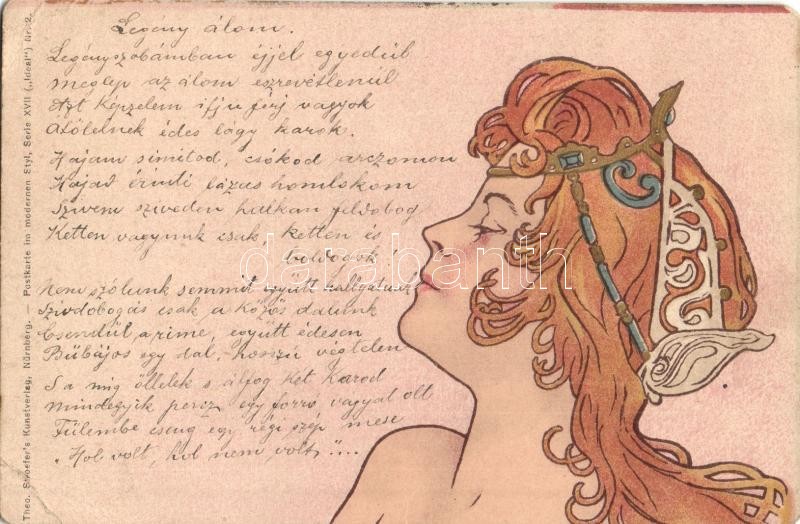 Legény álom.
Legényszobámban éjjel egyedül
meglep az álom észrevétlenül
Azt képzelem ifju férj vagyok
Átölelnek édes lágy karok.
Hajam simitod, csókod arczomon
Hajad érinti lázas homlokom
Szivem sziveden halkan feldobog
Ketten vagyunk csak, ketten és
boldogok!
Nem szólunk semmit együtt hallgatunk
Szivdobogás csak a közös dalunk
Csendül a rime, együtt édesen
Bübájos egy dal, hosszú végtelen
S a mig öllelek s átfog két karod
mindegyik percz egy forró vágyat olt
Fülembe cseng egy régi szép mese
"Hol volt, hol nem volt"....
Theo. Stroefer's Kunstverlag, Nürnberg. — Postkarte im modernen Styl, Serie XVII („Ideal") Nr. 2.
darabanth